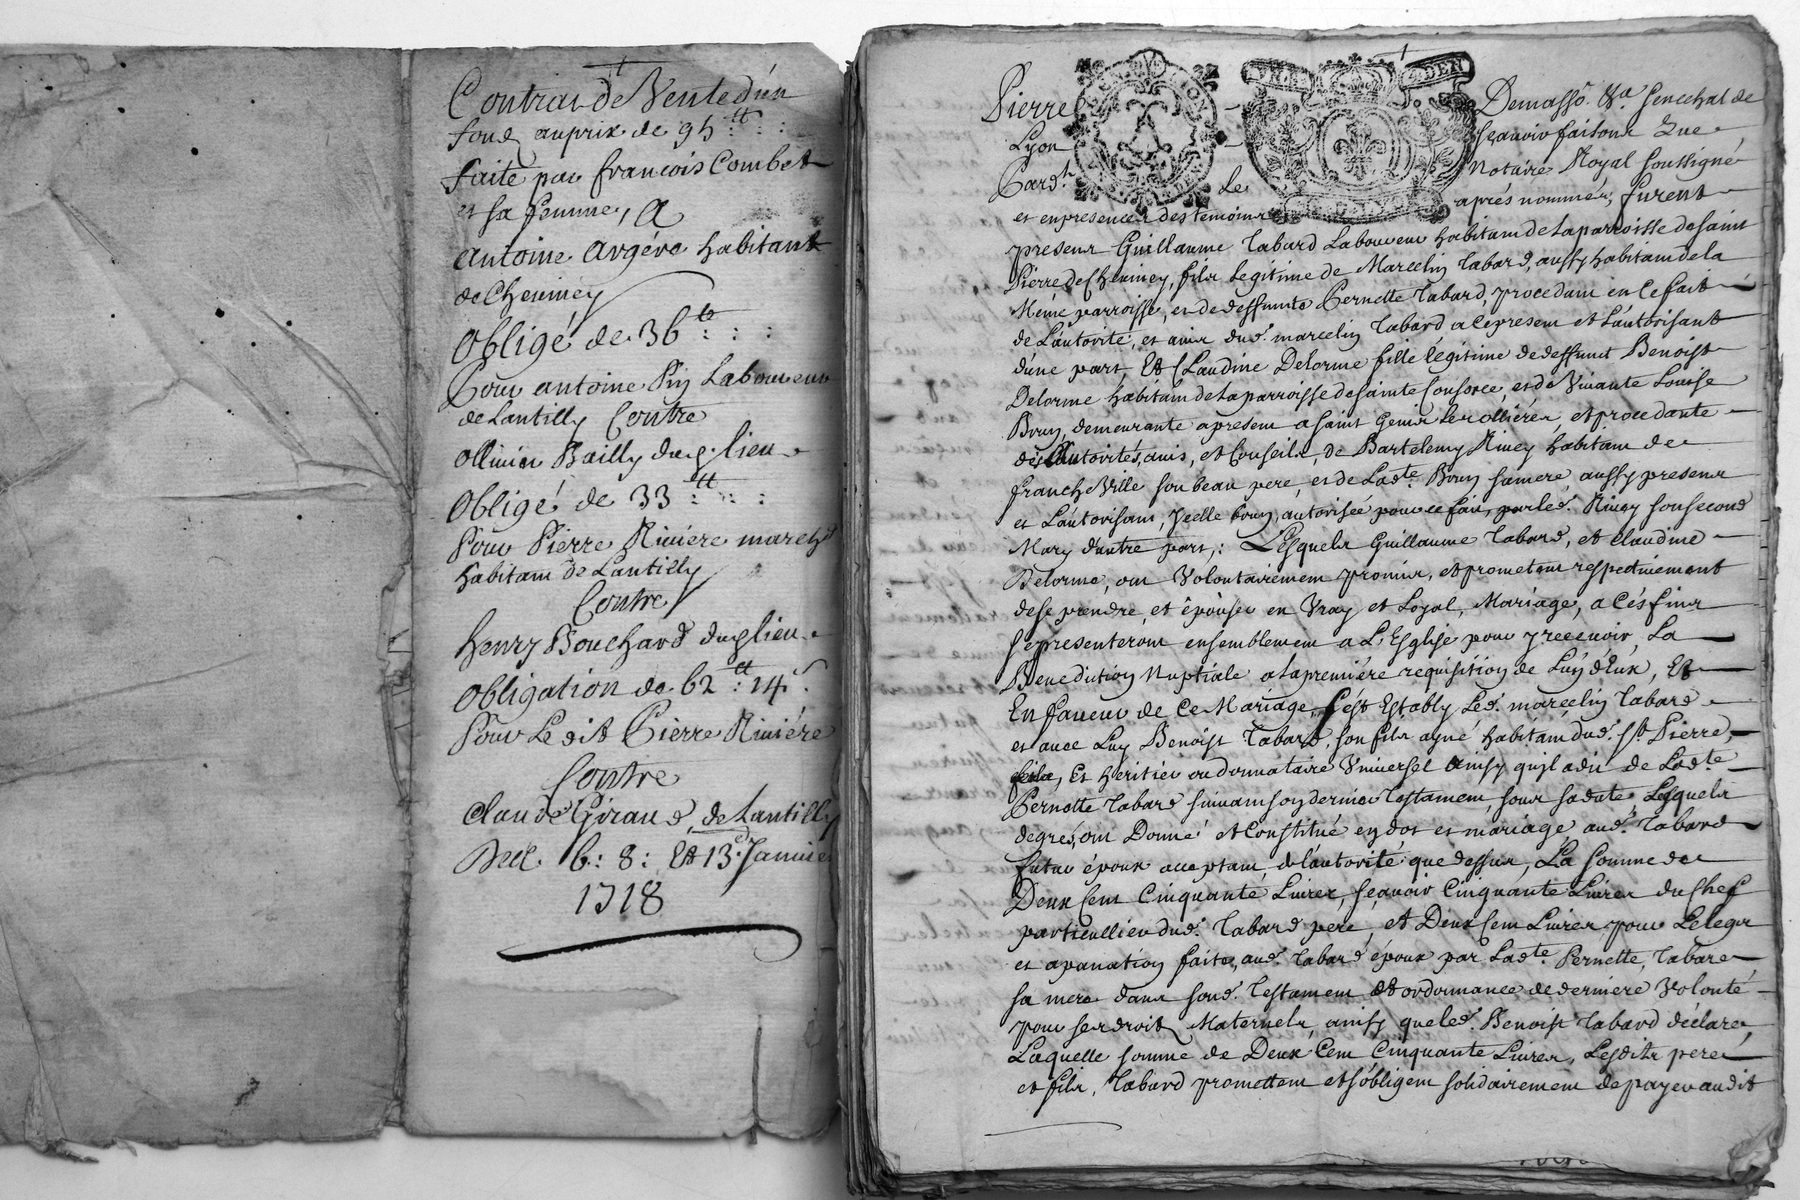 Contrat de Vente d'un
fond au prix de 95 tt : :
faite par francois Combet
et sa femme, A
Antoine Argéro habitant
de Cheviney
Obligé de 36 tt : : :
Pour antoine Pin Laboureur
de Lantilly Contre
Ollivier Bailly dud. lieu
Obligé de 33 tt : : :
Pour Pierre Riviere march.d
habitant de Lantilly
Contre
Henry Bouchard dud. lieu
Obligation de 62 tt : 14 s.
Pour Ledit Pierre Riviére
Contre
Claude Giraud, de Lantilly
6 : 8 : Et 13.e Janvier
1718
Pierre Demasso Senechal de
Lyon sçauoir faisons Que
Pard.t le Notaire Royal soussigné
et en presence des temoins aprés nommés, furent
presens Guillaume Tabard Laboureur habitant de La parroisse de saint
Pierre de Cheviney, fils legitime de Marcelin Tabard, aussy habitant de la
Méme parroisse, et de deffuncte Pernette Tabard, procedant en ce fait
de L'autorité, et auis dud. marcelin Tabard a ce present et L'autorisant
d'une part, Et Claudine Delorme fille légitime de deffunct Benoist
Delorme habitant de La parroisse de sainte Consorce, et de Viuante Louise
Brun, demeurante a present a saint Genis les ollières, et procedante
des autorités, auis, et Conseils, de Bartelemy Riuey habitant de
francheVille son beau pere, et de Lad.te Brun sa mere, aussy presens
et L'autorisant, Jcelle brun, autorisée pour ce fait, par led. Riuey son second
Mary d'autre part,: Lesquels Guillaume Tabard, et claudine
Delorme, ont Volontairement promis, et prometent respectiuement
de se prendre, et épouser en Vray et Loyal, Mariage, a Cés fins
se presenteront ensemblement a L'Esglise pour y receuoir, La
Benediction Nuptiale a la premiére requisition de L'un d'Eux, Et
En faueur de Ce Mariage, s'est Estably Led. marcelin Tabard
et auec Luy Benoist Tabard, son fils ayné habitant dud. S.t Pierre,
Et heritier ou donnataire Vniuersel ainsy qu'jl a dit de Lad.te
Pernette Tabard suiuant son dernier Testament, sous sa date, Lesquels
de grés, ont Donné et Constitué en dot et mariage aud. Tabard
futur époux acceptant, de l'autorité que dessus, La somme de
Deux Cent Cinquante Liures, sçauoir Cinquante Liures du Chef
particullier dud. Tabard pere, et Deux Cent Liures pour Le legs
et apanation faite, aud. Tabard époux par Lad.te Pernette, Tabard
sa mere dans sond. Testament et ordonnance de derniere Volonté
pour ses droits Maternels, ainsy que led. Benoist Tabard déclare,
Laquelle somme de Deux Cent Cinquante Liures, Lesdits pere
et fils, Tabard promettent et s'obligent solidairement de payer audit